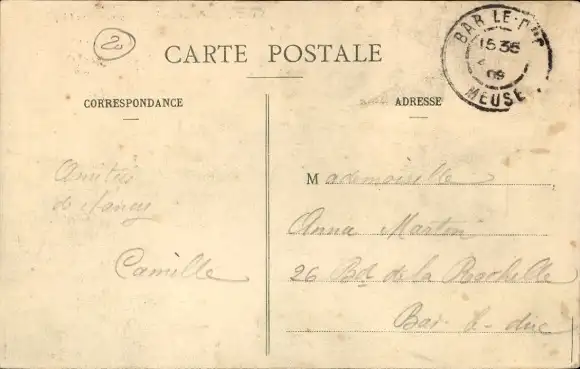 20
CARTE POSTALE
BAR LE-DUC
15 35
09
MEUSE
CORRESPONDANCE
ADRESSE
Amitiés
de Nancy
Camille
Mademoiselle
Anna Martin
26 Bd de la Rochelle
Bar-le-duc